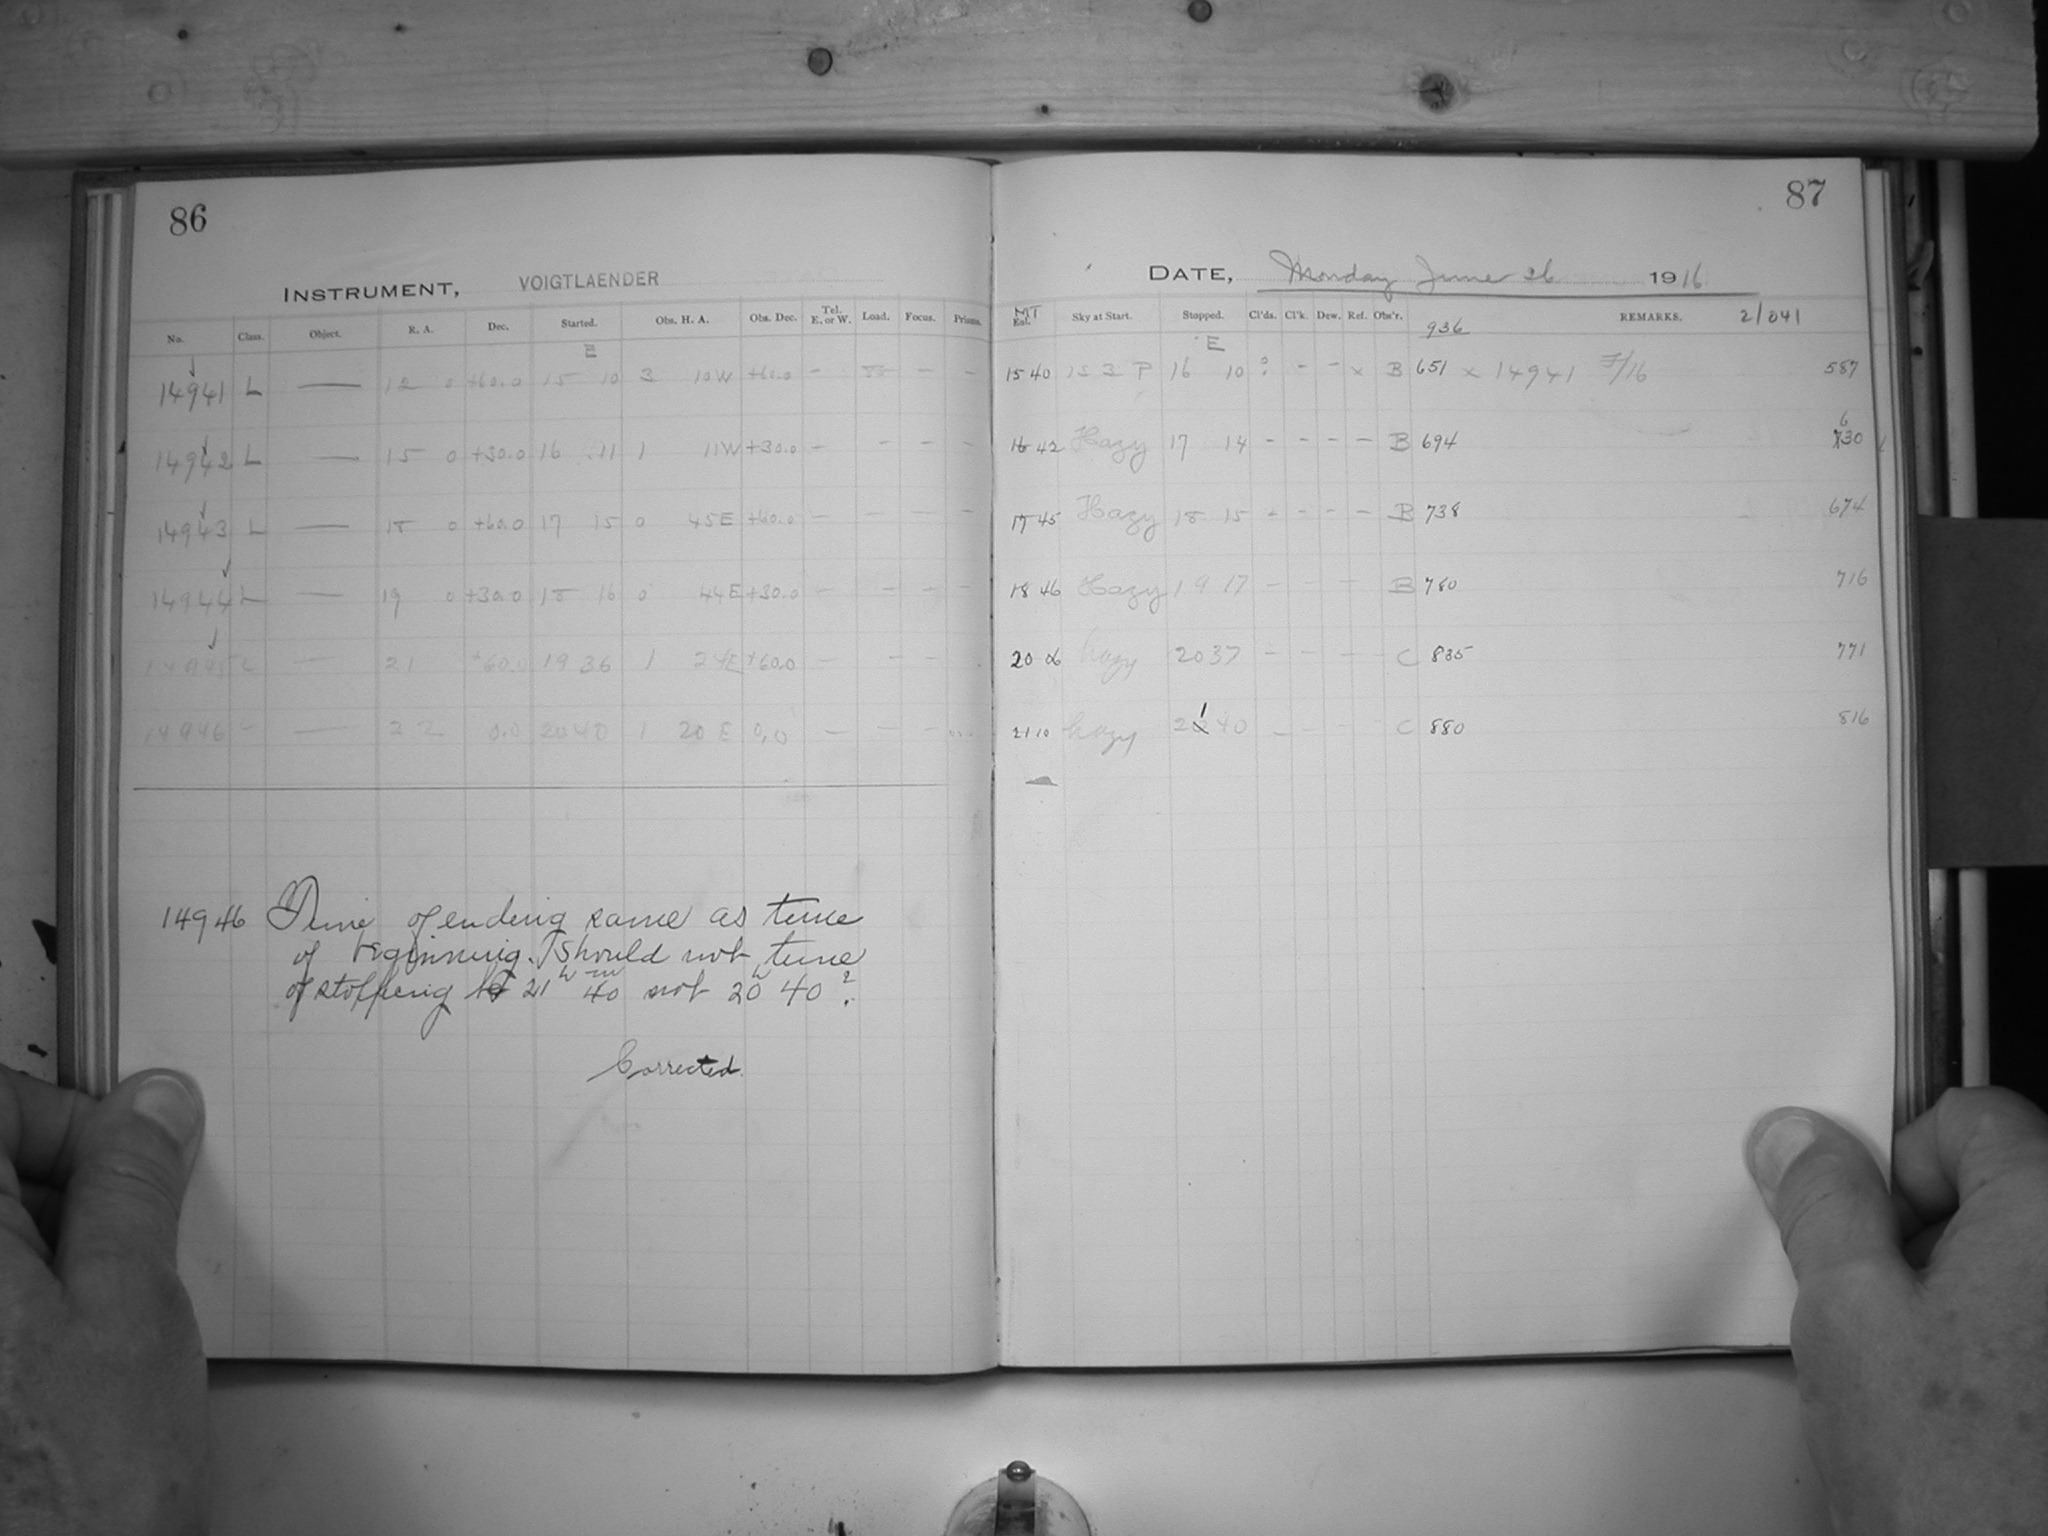 86
INSTRUMENT, VOIGTLAENDER
No. Class. Object. R. A. Dec. Started. Obs. H. A. Obs. Dec. Tel. E. or W. Load. Focus. Prisms.
E
14941 L — 12 0 +60.0 15 10 3 10W +60.0 — — —
14942 L — 15 0 +30.0 16 11 1 11W +30.0 — — — —
14943 L — 18 0 +60.0 17 15 0 45E +60.0 — — — —
14944 L — 19 0 +30.0 18 16 0 44E +30.0 — — — —
14945 L — 21 +60.0 19 36 1 24E +60.0 — — —
14946 — 22 0.0 20 40 1 20 E 0.0 — — —
14946 Time of ending same as time
of beginning. Should not time
of stopping be 21h 40m not 20h 40?
Corrected.
87
DATE, Monday June 26 1916
MT
Sky at Start. Stopped. Cl'ds. Cl'k. Dew. Ref. Obs'r. 936 REMARKS. 21041
E
15 40 1S 3 P 16 10 : - - x B 651 x 14941 F/16 587
16 42 Hazy 17 14 - - - - B 694 630
17 45 Hazy 18 15 - - - - B 738 674
18 46 Hazy 19 17 - - - B 780 716
20 06 hazy 20 37 - - - - C 835 771
21 10 hazy 21 40 - - - - C 880 816